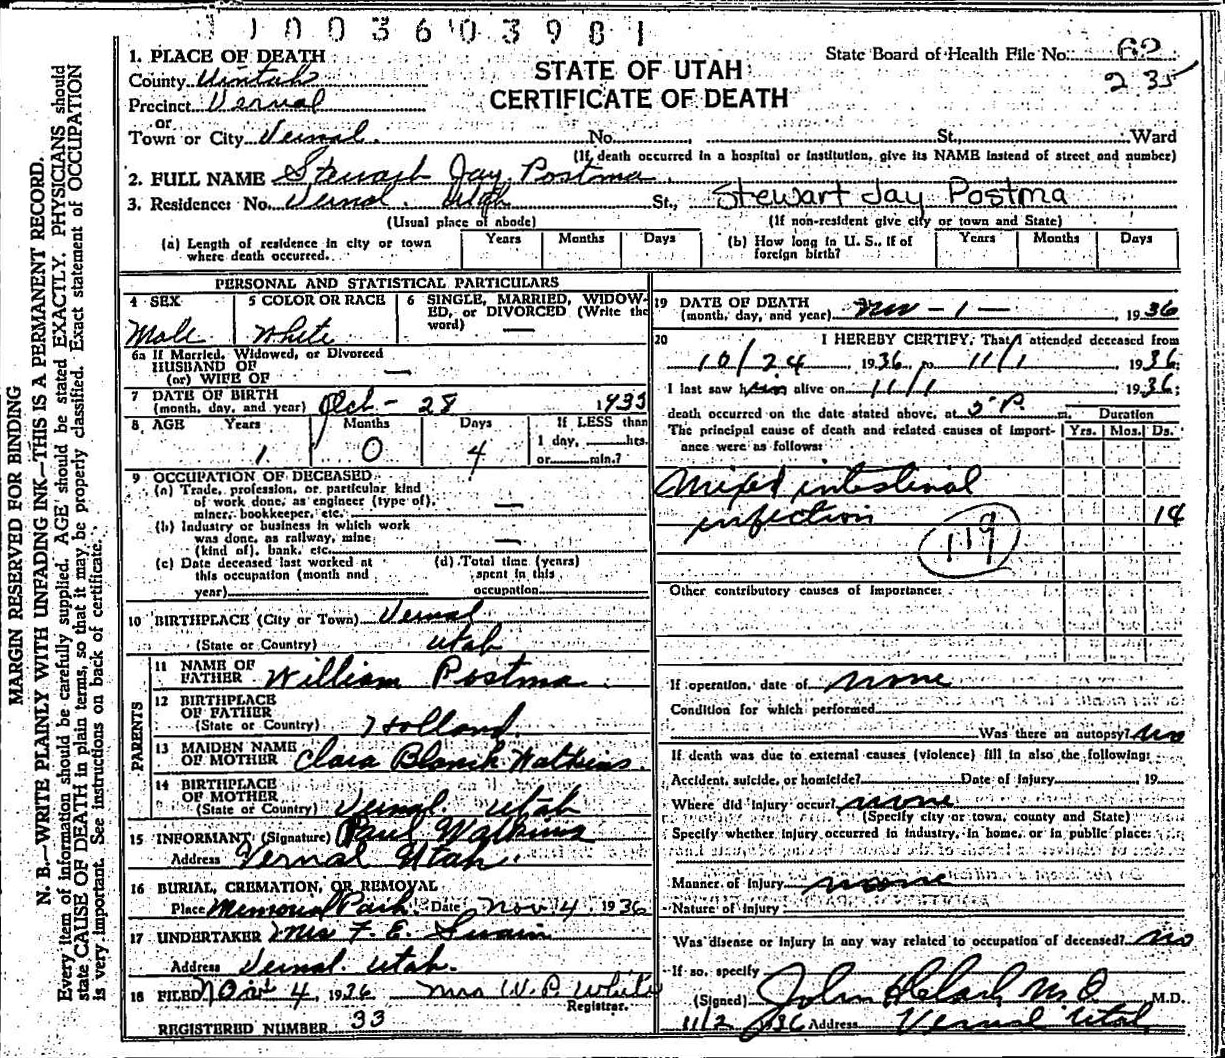 11003603981
MARGIN RESERVED FOR BINDING
N. B.—WRITE PLAINLY WITH UNFADING INK—THIS IS A PERMANENT RECORD.
Every item of information should be carefully supplied. AGE should be stated EXACTLY. PHYSICIANS should
state CAUSE OF DEATH in plain terms, so that it may be properly classified. Exact statement of OCCUPATION
is very important. See instructions on back of certificate.
1. PLACE OF DEATH
County Uintah
Precinct Vernal
or
Town or City Vernal. No. St, Ward
State Board of Health File No. 62
235
STATE OF UTAH
CERTIFICATE OF DEATH
(If death occurred in a hospital or institution, give its NAME instead of street and number)
2. FULL NAME Stewart Jay Postma
3. Residence: No. Vernal. Utah St., Stewart Jay Postma
(Usual place of abode) (If non-resident give city or town and State)
(a) Length of residence in city or town where death occurred. Years Months Days
(b) How long in U. S., if of foreign birth? Years Months Days
PERSONAL AND STATISTICAL PARTICULARS
4 SEX 5 COLOR OR RACE 6 SINGLE, MARRIED, WIDOW-
ED, or DIVORCED (Write the
word) —
Male White
6a If Married, Widowed, or Divorced
HUSBAND OF
(or) WIFE OF —
7 DATE OF BIRTH
(month, day, and year) Oct - 28 1935
8. AGE Years Months Days If LESS than
1 0 4 1 day, hrs.
or min.?
9 OCCUPATION OF DECEASED
(a) Trade, profession, or particular kind
of work done, as engineer (type of),
miner, bookkeeper, etc. —
(b) Industry or business in which work
was done, as railway, mine
(kind of), bank, etc. —
(c) Date deceased last worked at
this occupation (month and
year)
(d) Total time (years)
spent in this
occupation
10 BIRTHPLACE (City or Town) Vernal
(State or Country) Utah
PARENTS
11 NAME OF
FATHER William Postma
12 BIRTHPLACE
OF FATHER
(State or Country) Holland.
13 MAIDEN NAME
OF MOTHER Clara Blanch Watkins.
14 BIRTHPLACE
OF MOTHER
(State or Country) Vernal. Utah
15 INFORMANT (Signature) Paul Watkins
Address Vernal Utah.
16 BURIAL, CREMATION, OR REMOVAL
Place Memorial Park. Date Nov. 4, 1936
17 UNDERTAKER Mrs F. E. Swain
Address Vernal. Utah.
18 FILED Nov 4, 1936 Mrs W. P. White
Registrar.
REGISTERED NUMBER 33
19 DATE OF DEATH
(month, day, and year) Nov - 1 - , 1936
20 I HEREBY CERTIFY, That I attended deceased from
10/24 1936 to 11/1 1936.
I last saw him alive on 11/1 1936;
death occurred on the date stated above, at 5 P. m. Duration
The principal cause of death and related causes of import-
ance were as follows: Yrs. Mos. Ds.
Mixed intestinal
infection 14
119
Other contributory causes of importance:
If operation, date of none
Condition for which performed
Was there an autopsy? no
If death was due to external causes (violence) fill in also the following:
Accident, suicide, or homicide? Date of injury 19
Where did injury occur? none
(Specify city or town, county and State)
Specify whether injury occurred in industry, in home, or in public place:
Manner of injury none
Nature of injury
Was disease or injury in any way related to occupation of deceased? no
If so, specify
(Signed) John Clark M.D. M.D.
11/2 1936 Address Vernal Utah